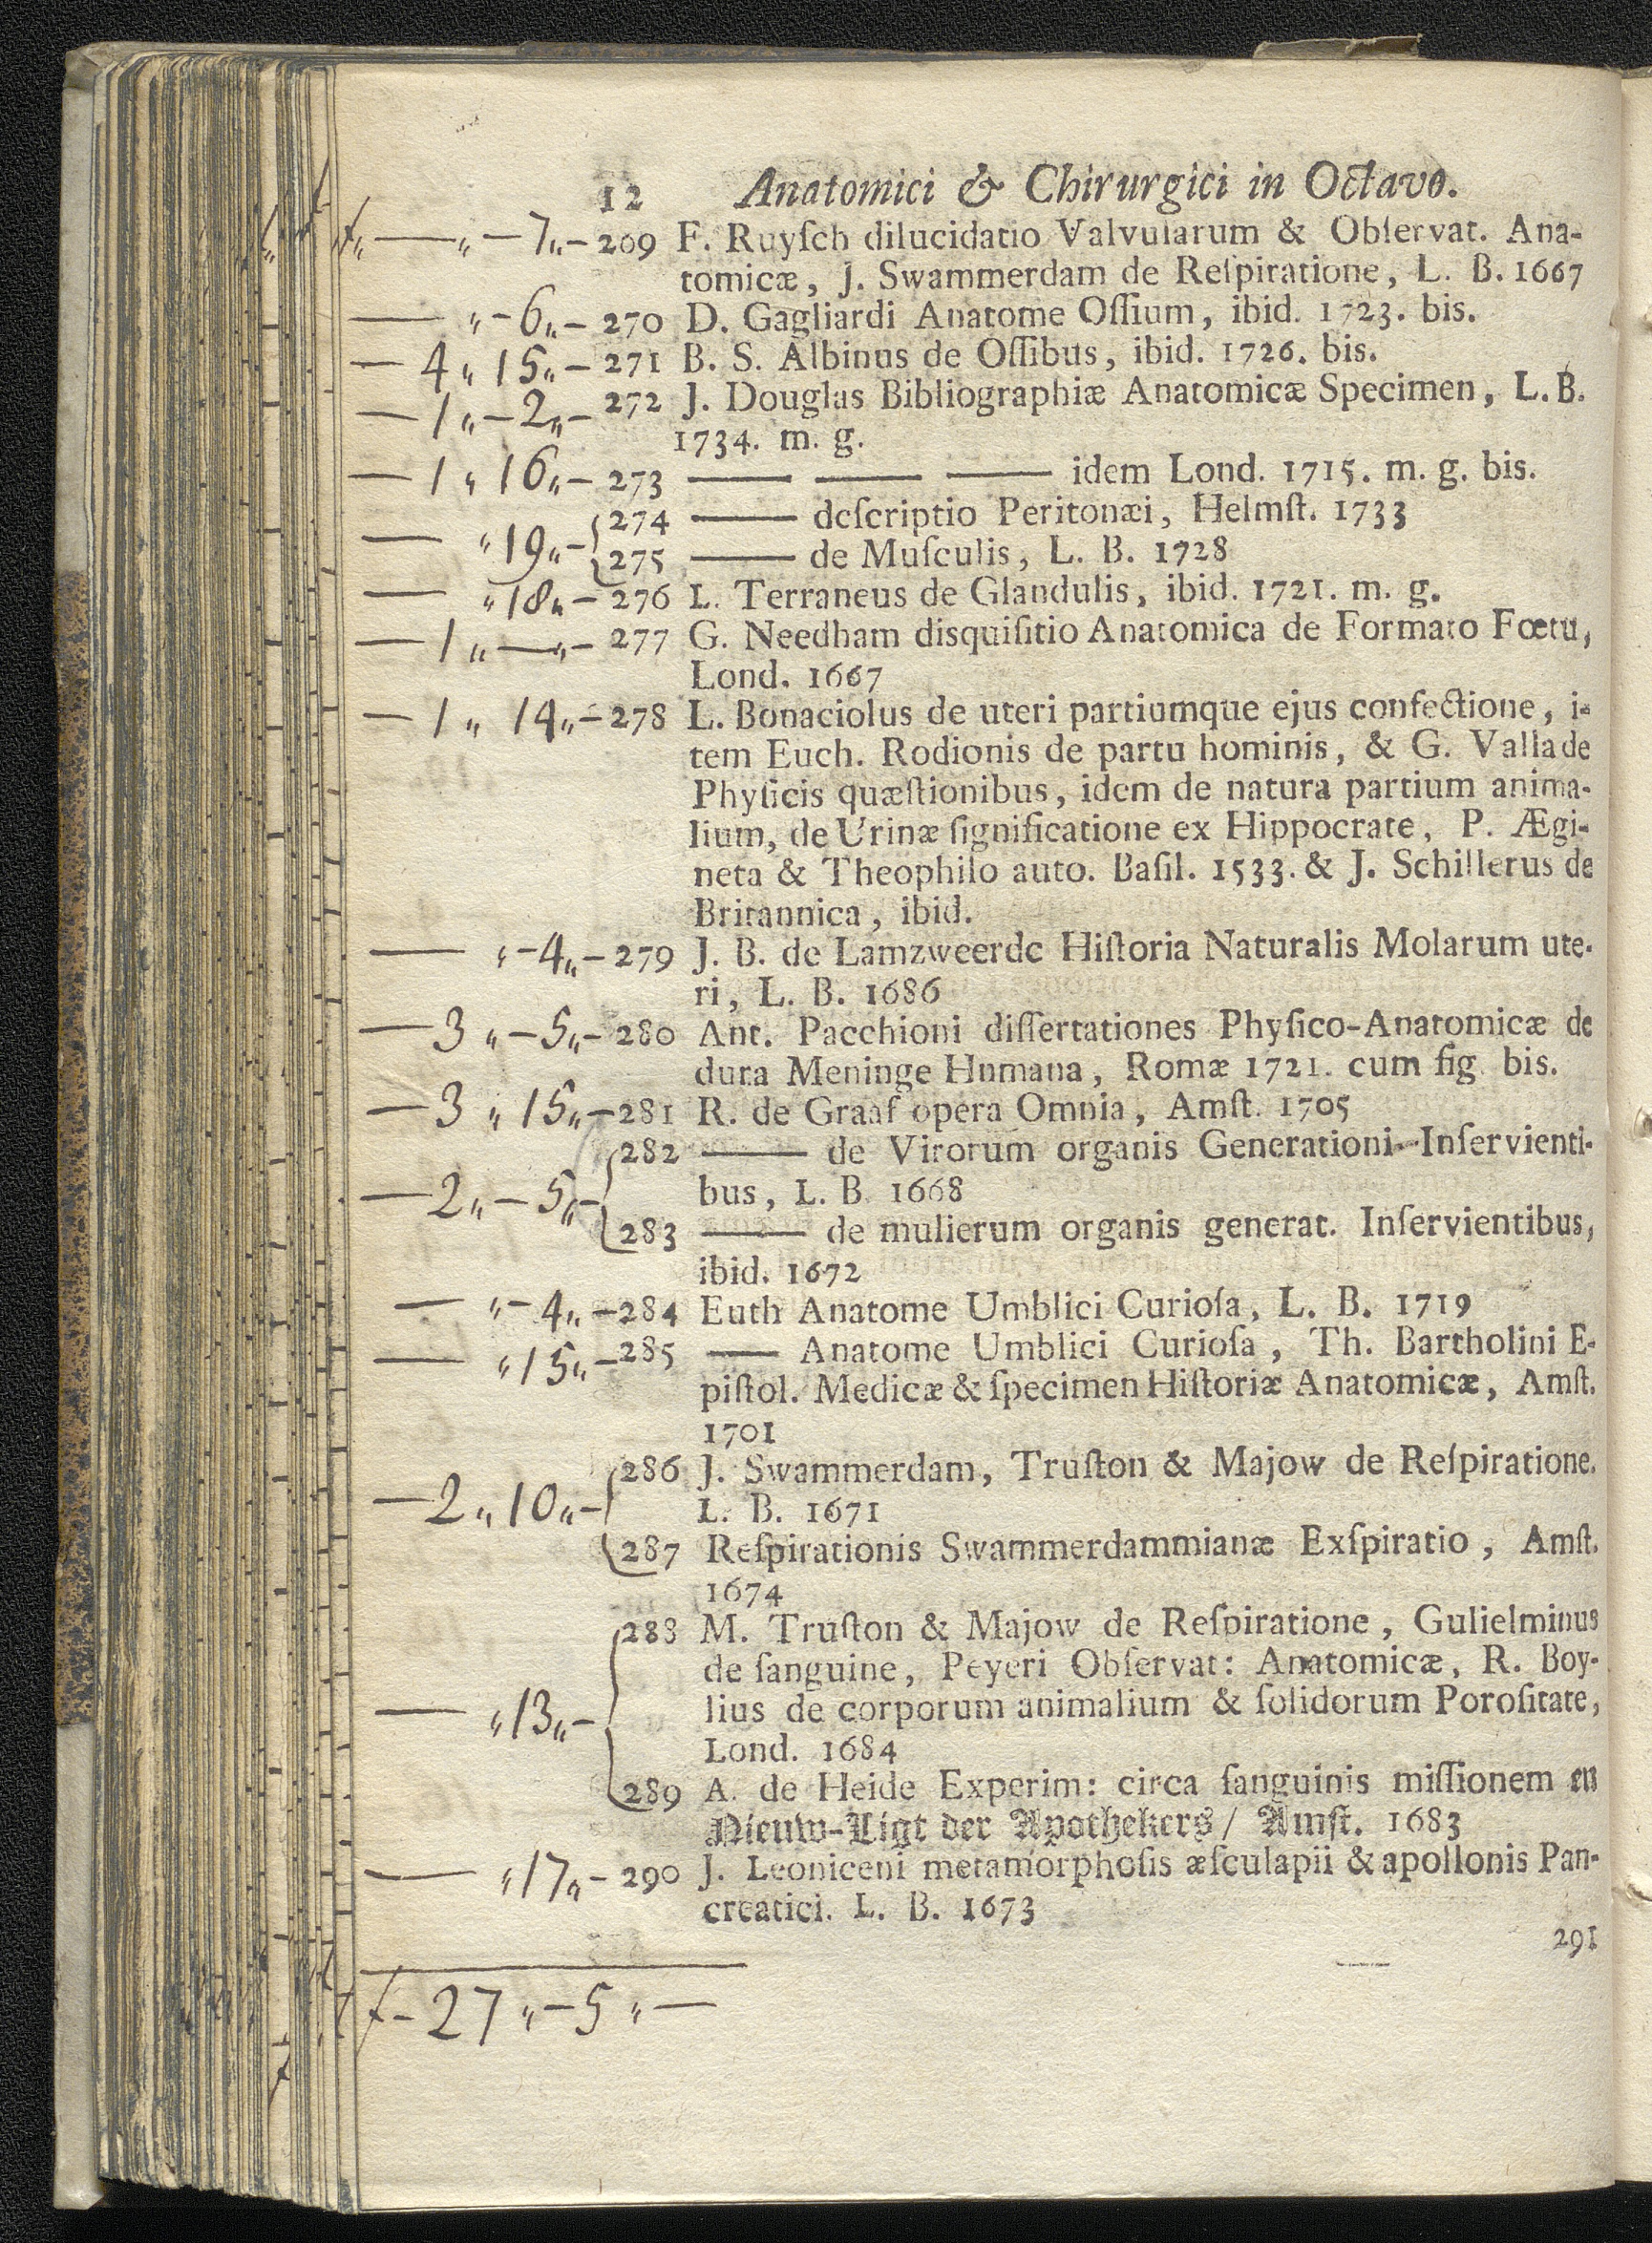 12 Anatomici & Chirurgici in Octavo.
f„ — „ — 7„ — 269 F. Ruyſch dilucidatio Valvularum & Obſervat. Ana-
tomicæ, J. Swammerdam de Reſpiratione, L. B. 1667
— „ — 6„ — 270 D. Gagliardi Anatome Oſſium, ibid. 1723. bis.
— 4 „ 15„ — 271 B. S. Albinus de Oſſibus, ibid. 1726. bis.
— 1 „ — 2„ — 272 J. Douglas Bibliographiæ Anatomicæ Specimen, L. B.
1734. m. g.
— 1 „ 16„ — 273 —— —— —— idem Lond. 1715. m. g. bis.
274 —— deſcriptio Peritonæi, Helmſt. 1733
— „ 19„ — 275 —— de Muſculis, L. B. 1728
— „ 18„ — 276 L. Terraneus de Glandulis, ibid. 1721. m. g.
— 1 „ — „ — 277 G. Needham disquiſitio Anatomica de Formato Fœtu,
Lond. 1667
— 1 „ 14„ — 278 L. Bonaciolus de uteri partiumque ejus confectione, i-
tem Euch. Rodionis de partu hominis, & G. Valla de
Phyſicis quæſtionibus, idem de natura partium anima-
lium, de Urinæ ſignificatione ex Hippocrate, P. Ægi-
neta & Theophilo auto. Baſil. 1533. & J. Schillerus de
Britannica, ibid.
— „ — 4„ — 279 J. B. de Lamzweerde Hiſtoria Naturalis Molarum ute-
ri, L. B. 1686
— 3 „ — 5„ — 280 Ant. Pacchioni diſſertationes Phyſico-Anatomicæ de
dura Meninge Humana, Romæ 1721. cum fig. bis.
— 3 „ 15„ — 281 R. de Graaf opera Omnia, Amſt. 1705
282 —— de Virorum organis Generationi-Inſervienti-
— 2 „ — 5„ — bus, L. B. 1668
283 —— de mulierum organis generat. Inſervientibus,
ibid. 1672
— „ — 4„ — 284 Euth Anatome Umblici Curioſa, L. B. 1719
— „ 15„ — 285 —— Anatome Umblici Curioſa, Th. Bartholini E-
piſtol. Medicæ & ſpecimen Hiſtoriæ Anatomicæ, Amſt.
1701
286 J. Swammerdam, Truſton & Majow de Reſpiratione.
— 2 „ 10„ — L. B. 1671
287 Reſpirationis Swammerdammianæ Exſpiratio, Amſt.
1674
288 M. Truſton & Majow de Reſpiratione, Gulielminus
de ſanguine, Peyeri Obſervat: Anatomicæ, R. Boy-
— „ 13„ — lius de corporum animalium & ſolidorum Poroſitate,
Lond. 1684
289 A. de Heide Experim: circa ſanguinis miſſionem en
Nieuw-Ligt der Apothekers / Amſt. 1683
— „ 17„ — 290 J. Leoniceni metamorphoſis æſculapii & apollonis Pan-
creatici. L. B. 1673
291
f — 27 „ — 5 „ —